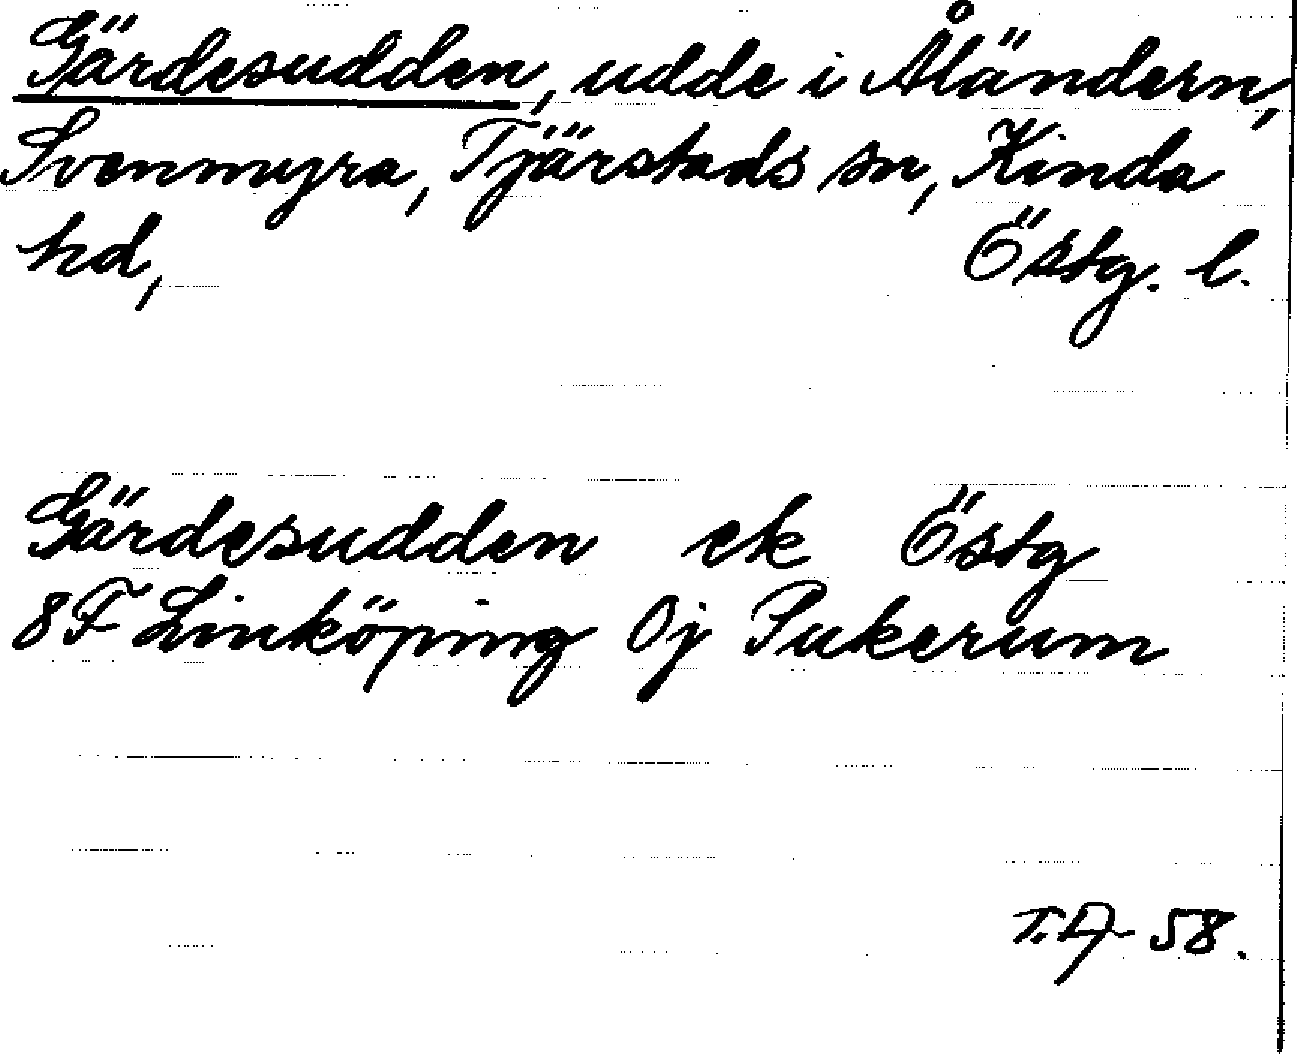 Gärdesudden, udde i Åländern,
Svenmyra, Tjärstads sn, Kinda
hd, Östg. l.
Gärdesudden ek Östg
8F Linköping 0j Pukerum
58.